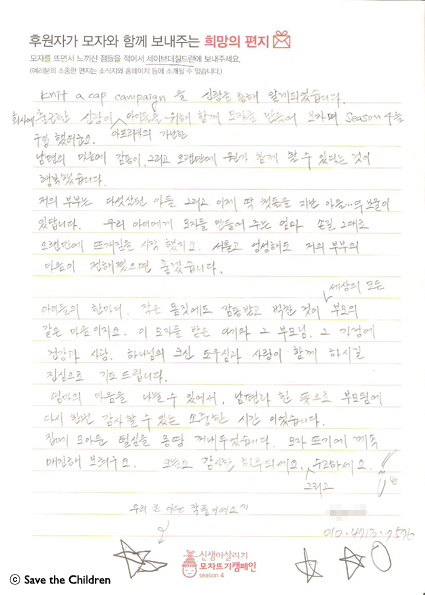 후원자가 모자와 함께 보내주는 희망의 편지
모자를 뜨면서 느끼신 점들을 적어서 세이브더칠드런에 보내주세요.
(여러분의 소중한 편지는 소식지와 홈페이지 등에 소개될 수 있습니다.)
Knit a cap campaign 을 신랑을 통해 알게되었습니다.
회사에 출근한 신랑이 아이들을 위해 함께 모자를 만들어 보자며 Season 4를
구입했어요. 아프리카의 가난한
남편의 마음에 감동이, 그리고 오랜만에 함께 할 수 있다는 것이
행복했습니다.
저의 부부는 다섯살된 아들 그리고 이제 막 첫돌을 지난 아들...두 보물이
있답니다. 우리 아이에게 모자를 만들어 주는 엄마 손길 그대로
오랜만에 뜨개질을 시작 했지요. 서툴고 엉성해도 저의 부부의
마음이 전해졌으면 좋겠습니다.
세상의 모든
아이들의 한마디, 작은 몸짓에도 감동받고 벅찬 것이 부모의
같은 마음이지요. 이 모자를 받은 아기와 그 부모님, 그 가정에
건강과 사랑, 하나님의 크신 도우심과 사랑이 함께 하시길
진심으로 기도 드립니다.
엄마의 마음을 나눌 수 있어서, 남편과 한 뜻으로 부모됨에
다시 한번 감사할 수 있는 소중한 시간 이었습니다.
집에 모아둔 털실을 몽땅 꺼내두었습니다. 모자 뜨기에 계속
매진해 보려구요. 감사한 하루되세요, 수고하세요.
그리고
우리 큰 아들 작품이예요^^
신생아살리기
모자뜨기캠페인
season 4
ⓒ Save the Children